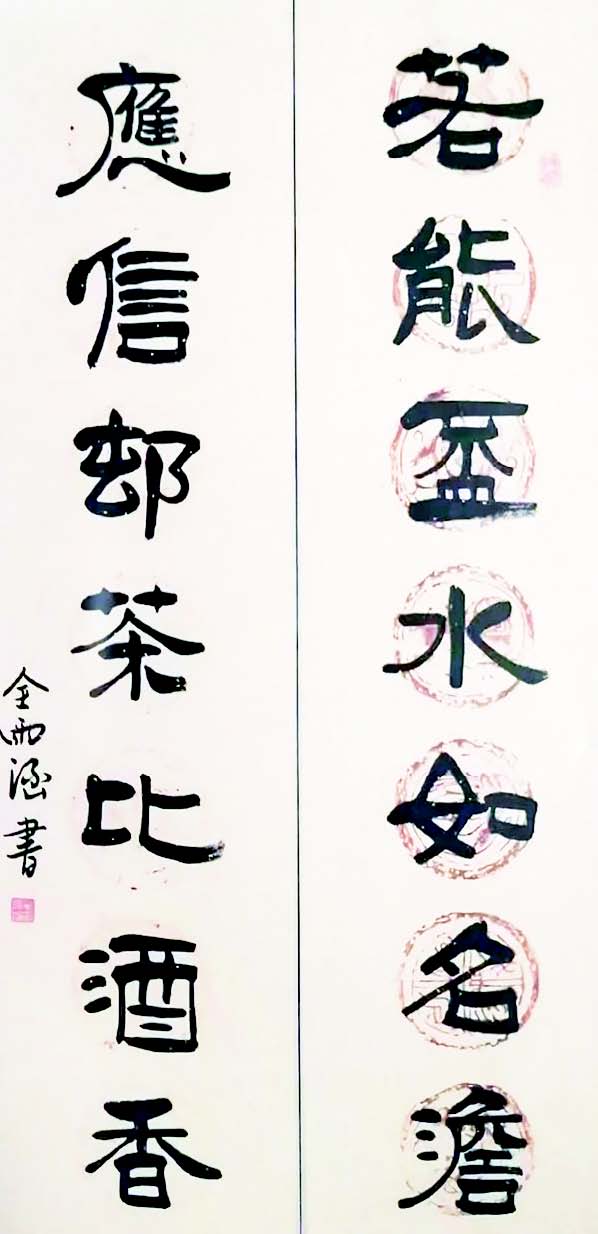 若能盃水如名澹
應信邨茶比酒香
金雨涵書